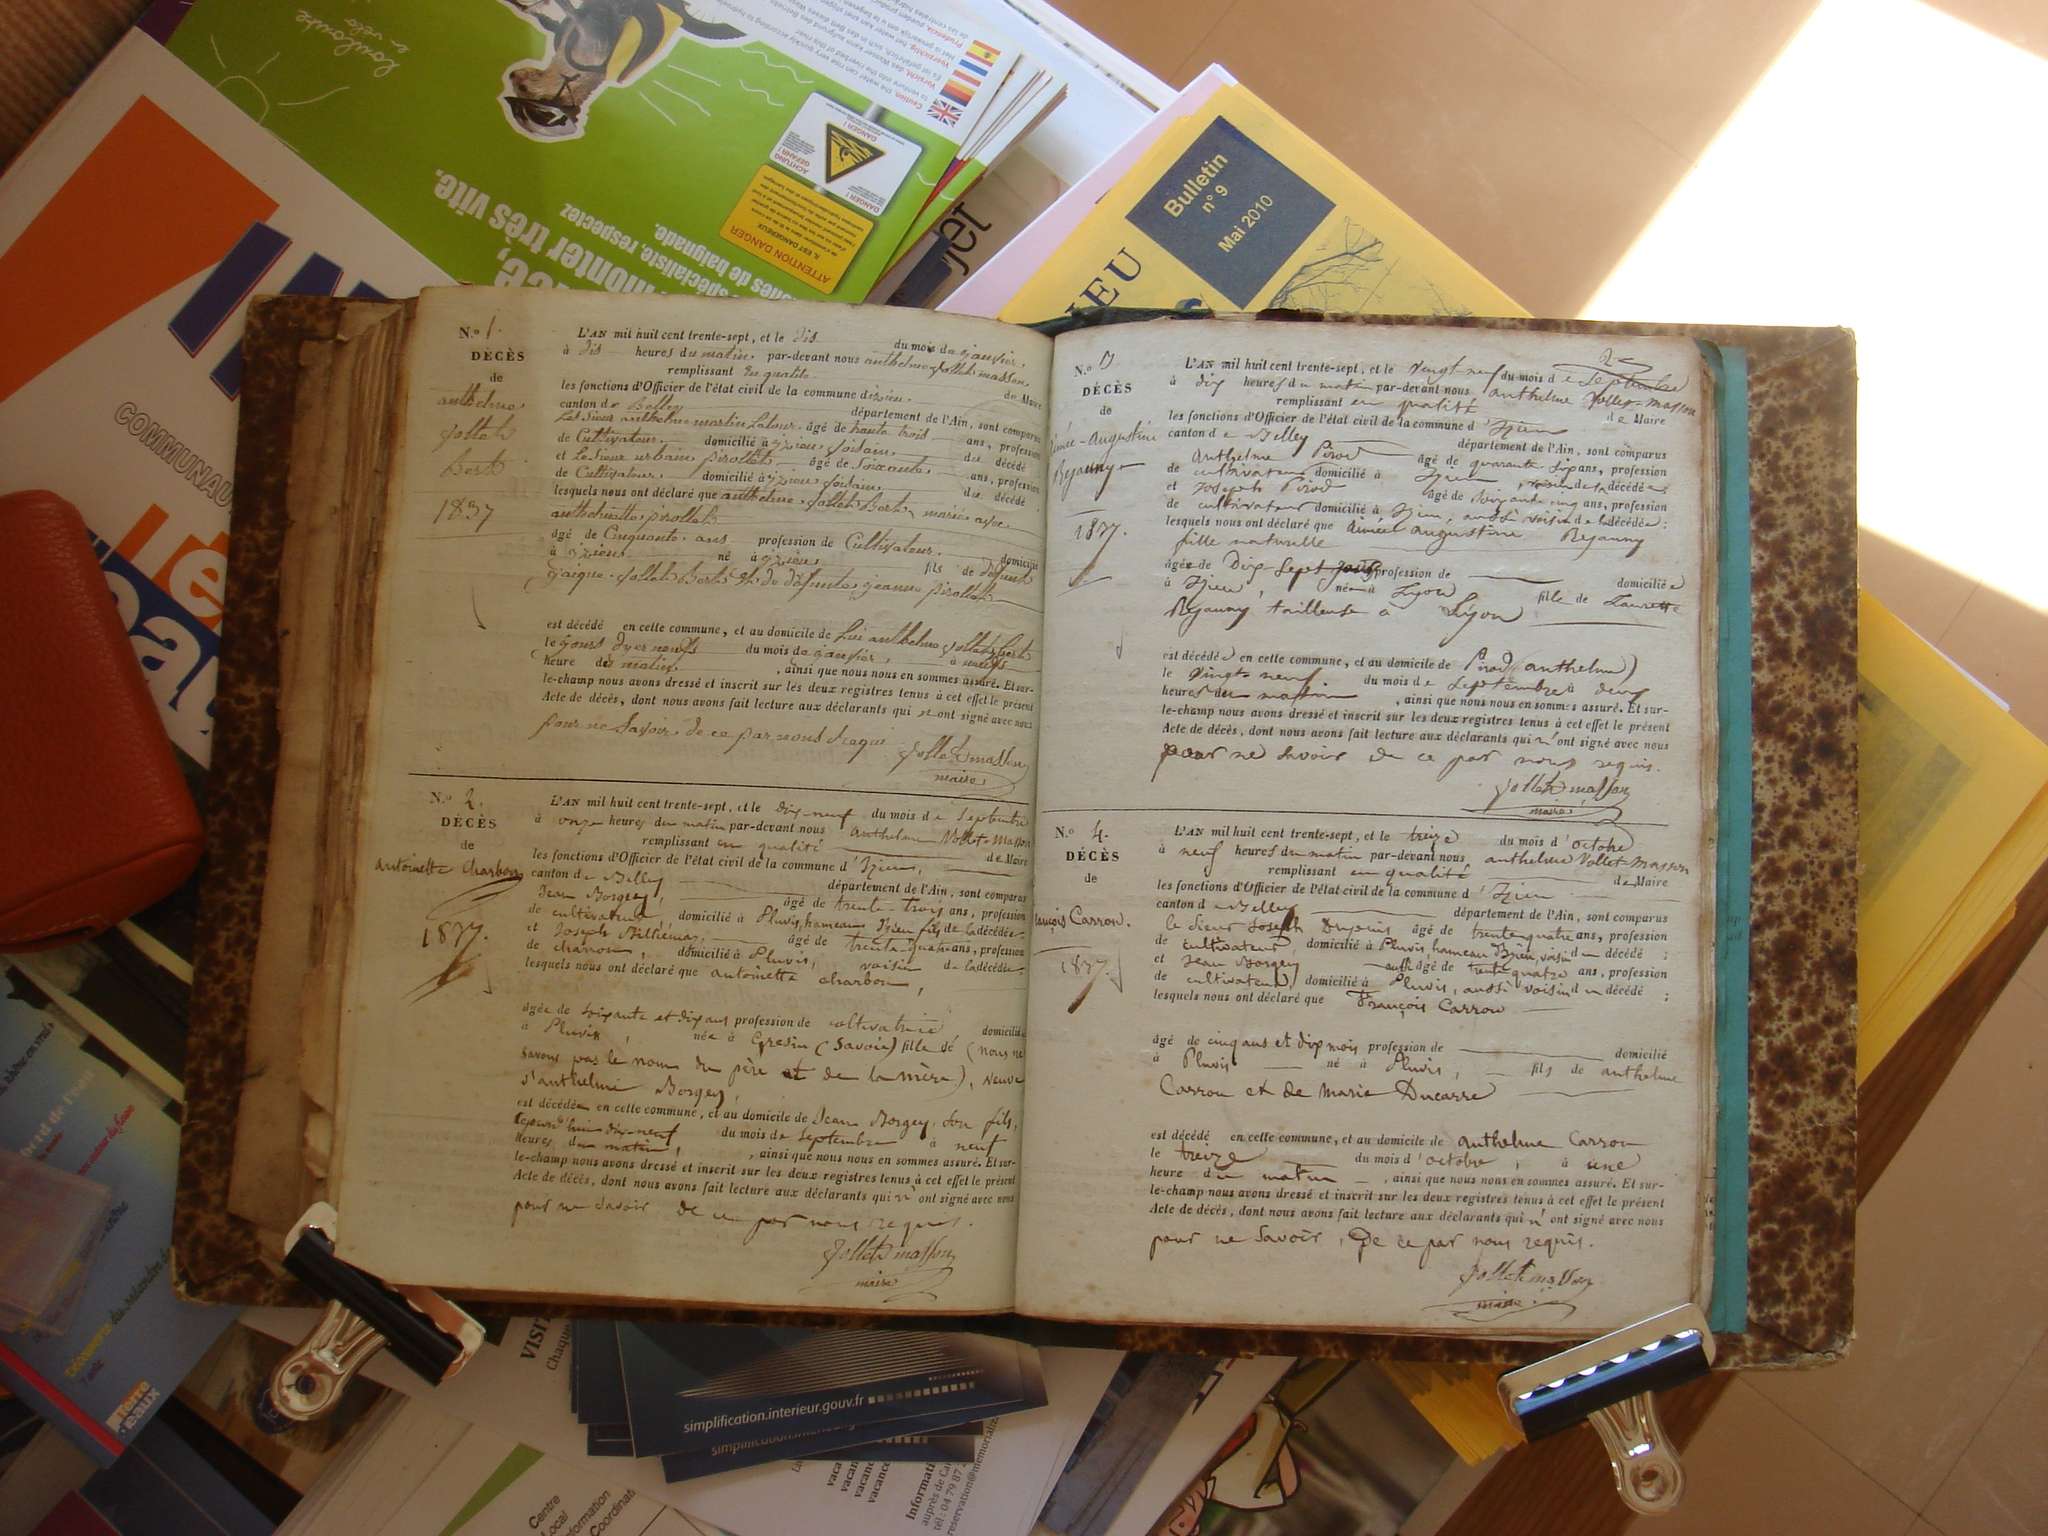 N.o 1.
DÉCÈS
de
anthelme
jollet
Berte
1837
L'AN mil huit cent trente-sept, et le dix du mois de janvier,
à dix heures du matin, par-devant nous anthelme jollet masson
remplissant en qualité de Maire
les fonctions d'Officier de l'état civil de la commune d'izieu,
canton de Belley département de l'Ain, sont comparus
Le Sieur anthelme martin Latour âgé de trente trois ans, profession
de Cultivateur domicilié à yzieu du décédé
et Le Sieur urbain pirollet âgé de soixante ans, profession
de Cultivateur domicilié à yzieu du décédé
lesquels nous ont déclaré que anthelme jollet Berte mariée avec
pirollet
âgé de Cinquante ans profession de Cultivateur domicilié
à yzieu né à yzieu fils de defunt
jollet Berte et de defunte jeanne pirollet
est décédé en cette commune, et au domicile de Lui anthelme jollet Berte
le du mois de janvier, à neuf
heure du matin, ainsi que nous nous en sommes assuré. Et sur-
le-champ nous avons dressé et inscrit sur les deux registres tenus à cet effet le présent
Acte de décès, dont nous avons fait lecture aux déclarants qui n'ont signé avec nous
pour ne Savoir de ce par nous requi
jollet masson
maire
N.o 2.
DÉCÈS
de
Antoinette Charbon
1837.
L'AN mil huit cent trente-sept, et le dix-neuf du mois de Septembre
à onze heures du matin par-devant nous anthelme Vollet-Masson
remplissant en qualité de Maire
les fonctions d'Officier de l'état civil de la commune d'Izieu,
canton de Belley département de l'Ain, sont comparus
Jean Borgey, âgé de trente-trois ans, profession
de cultivateur, domicilié à Pluvis, hameau Izieu fils de la décédée
et Joseph Billiémaz, âgé de trente quatre ans, profession
de charron, domicilié à Pluvis, voisin de la décédée
lesquels nous ont déclaré que antoinette charbon,
âgée de soixante et dix ans profession de cultivatrice, domiciliée
à Pluvis, née à Gresin (Savoie) fille de (nous ne
savons pas le nom du père et de la mère), veuve
d'anthelme Borgey,
est décédée en cette commune, et au domicile de Jean Borgey, son fils,
cejourd'hui dix-neuf du mois de Septembre à neuf
heures du matin, ainsi que nous nous en sommes assuré. Et sur-
le-champ nous avons dressé et inscrit sur les deux registres tenus à cet effet le présent
Acte de décès, dont nous avons fait lecture aux déclarants qui n'ont signé avec nous
pour ne savoir de ce par nous requis.
Jollet masson
maire
2
N.o 3
DÉCÈS
de
Aimée-Augustine
Rejauny
1837.
L'AN mil huit cent trente-sept, et le vingt neuf du mois de Septembre
à dix heures du matin par-devant nous anthelme Vollet-Masson
remplissant en qualité de Maire
les fonctions d'Officier de l'état civil de la commune d'Izieu
canton de Belley département de l'Ain, sont comparus
Anthelme Pirod âgé de quarante six ans, profession
de cultivateur domicilié à Izieu, voisin de la décédée
et Joseph Pirod âgé de soixante cinq ans, profession
de cultivateur domicilié à Izieu, aussi voisin de la décédée;
lesquels nous ont déclaré que Aimée augustine Rejauny
fille naturelle
âgée de Dix-Sept jours profession de domiciliée
à Izieu, née à Lyon fille de Laurette
Rejauny tailleuse à Lyon
est décédée en cette commune, et au domicile de Pirod (anthelme)
le vingt-neuf du mois de Septembre à deux
heures du matin, ainsi que nous nous en sommes assuré. Et sur-
le-champ nous avons dressé et inscrit sur les deux registres tenus à cet effet le présent
Acte de décès, dont nous avons fait lecture aux déclarants qui n'ont signé avec nous
pour ne savoir de ce par nous requis.
Jollet masson
maire
N.o 4.
DÉCÈS
de
François Carron.
1837.
L'AN mil huit cent trente-sept, et le treize du mois d'octobre
à neuf heures du matin par-devant nous anthelme Vollet-Masson
remplissant en qualité de Maire
les fonctions d'Officier de l'état civil de la commune d'Izieu
canton de Belley département de l'Ain, sont comparus
le Sieur Joseph Dupuis âgé de trente quatre ans, profession
de cultivateur, domicilié à Pluvis hameau d'Izieu, voisin du décédé;
et Jean Borgey aussi âgé de trente quatre ans, profession
de cultivateur, domicilié à Pluvis, aussi voisin du décédé;
lesquels nous ont déclaré que François Carron
âgé de cinq ans et dix mois profession de domicilié
à Pluvis né à Pluvis, fils de anthelme
Carron et de Marie Ducarre
est décédé en cette commune, et au domicile de anthelme Carron
le treize du mois d'octobre, à une
heure du matin, ainsi que nous nous en sommes assuré. Et sur-
le-champ nous avons dressé et inscrit sur les deux registres tenus à cet effet le présent
Acte de décès, dont nous avons fait lecture aux déclarants qui n'ont signé avec nous
pour ne savoir, De ce par nous requis.
Jollet masson
maire
Bulletin
n° 9
Mai 2010
IEU
jet
toulouse
en vélo
monter très vite.
spécialiste, respectez
zones de baignade.
ATTENTION DANGER
IL EST DANGEREUX
DANGER !
ACHTUNG
GEFAHR !
DANGER !
Prudencia
Voorzichtig
Vorsicht
Caution
COMMUNAU
Terre
d'eaux
VISIT
Chaque
simplification.interieur.gouv.fr
simplification.interieur
vaca
vacan
vacanc
vacance
Informati
auprès de Cam
tél : 04 79 87 2
reservation@memorializ
Centre
Local
formation
Coordinati